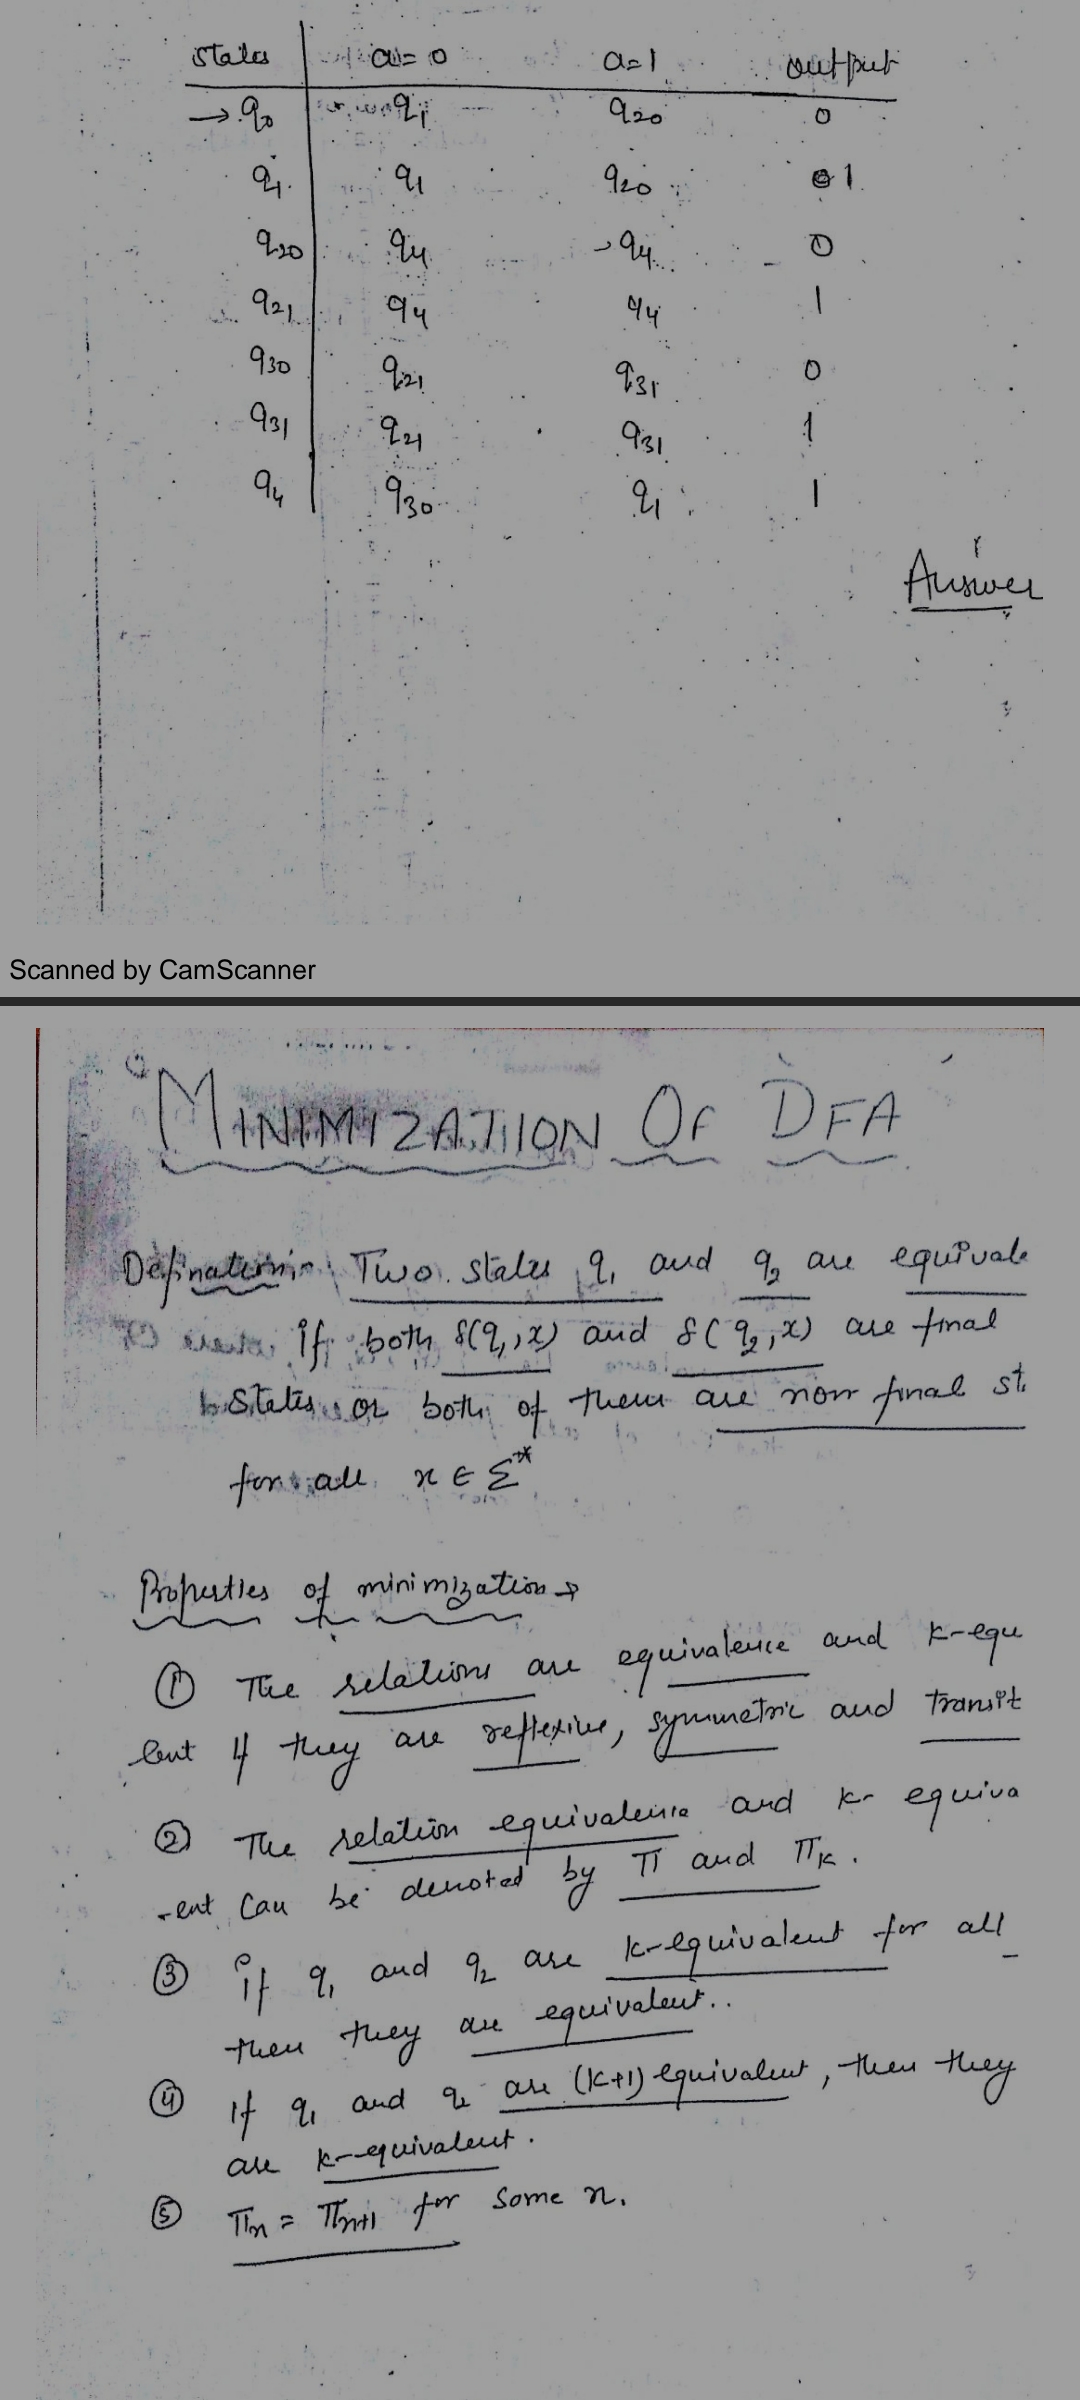 states a=0 a=1 output
→ q0 q1 q20 0
q1 q1 q20 1
q20 q4 q4 0
q21 q4 q4 1
q30 q21 q31 0
q31 q21 q31 1
q4 q30 q1 1
Answer
Scanned by CamScanner
MINIMIZATION OF DFA
Defination:- Two states q1 and q2 are equivale
if both δ(q1,x) and δ(q2,x) are final
states or both of them are non final st
for all x ∈ Σ*
Properties of minimization →
① The relations are equivalence and k-equ
lent if they are reflexive, symmetric and transit
② The relation equivalence and k- equiva
-ent can be denoted by π and πk.
③ if q1 and q2 are k-equivalent for all
then they are equivalent..
④ if q1 and q2 are (k+1) equivalent, then they
are k-equivalent.
⑤ πn = πn+1 for some n.